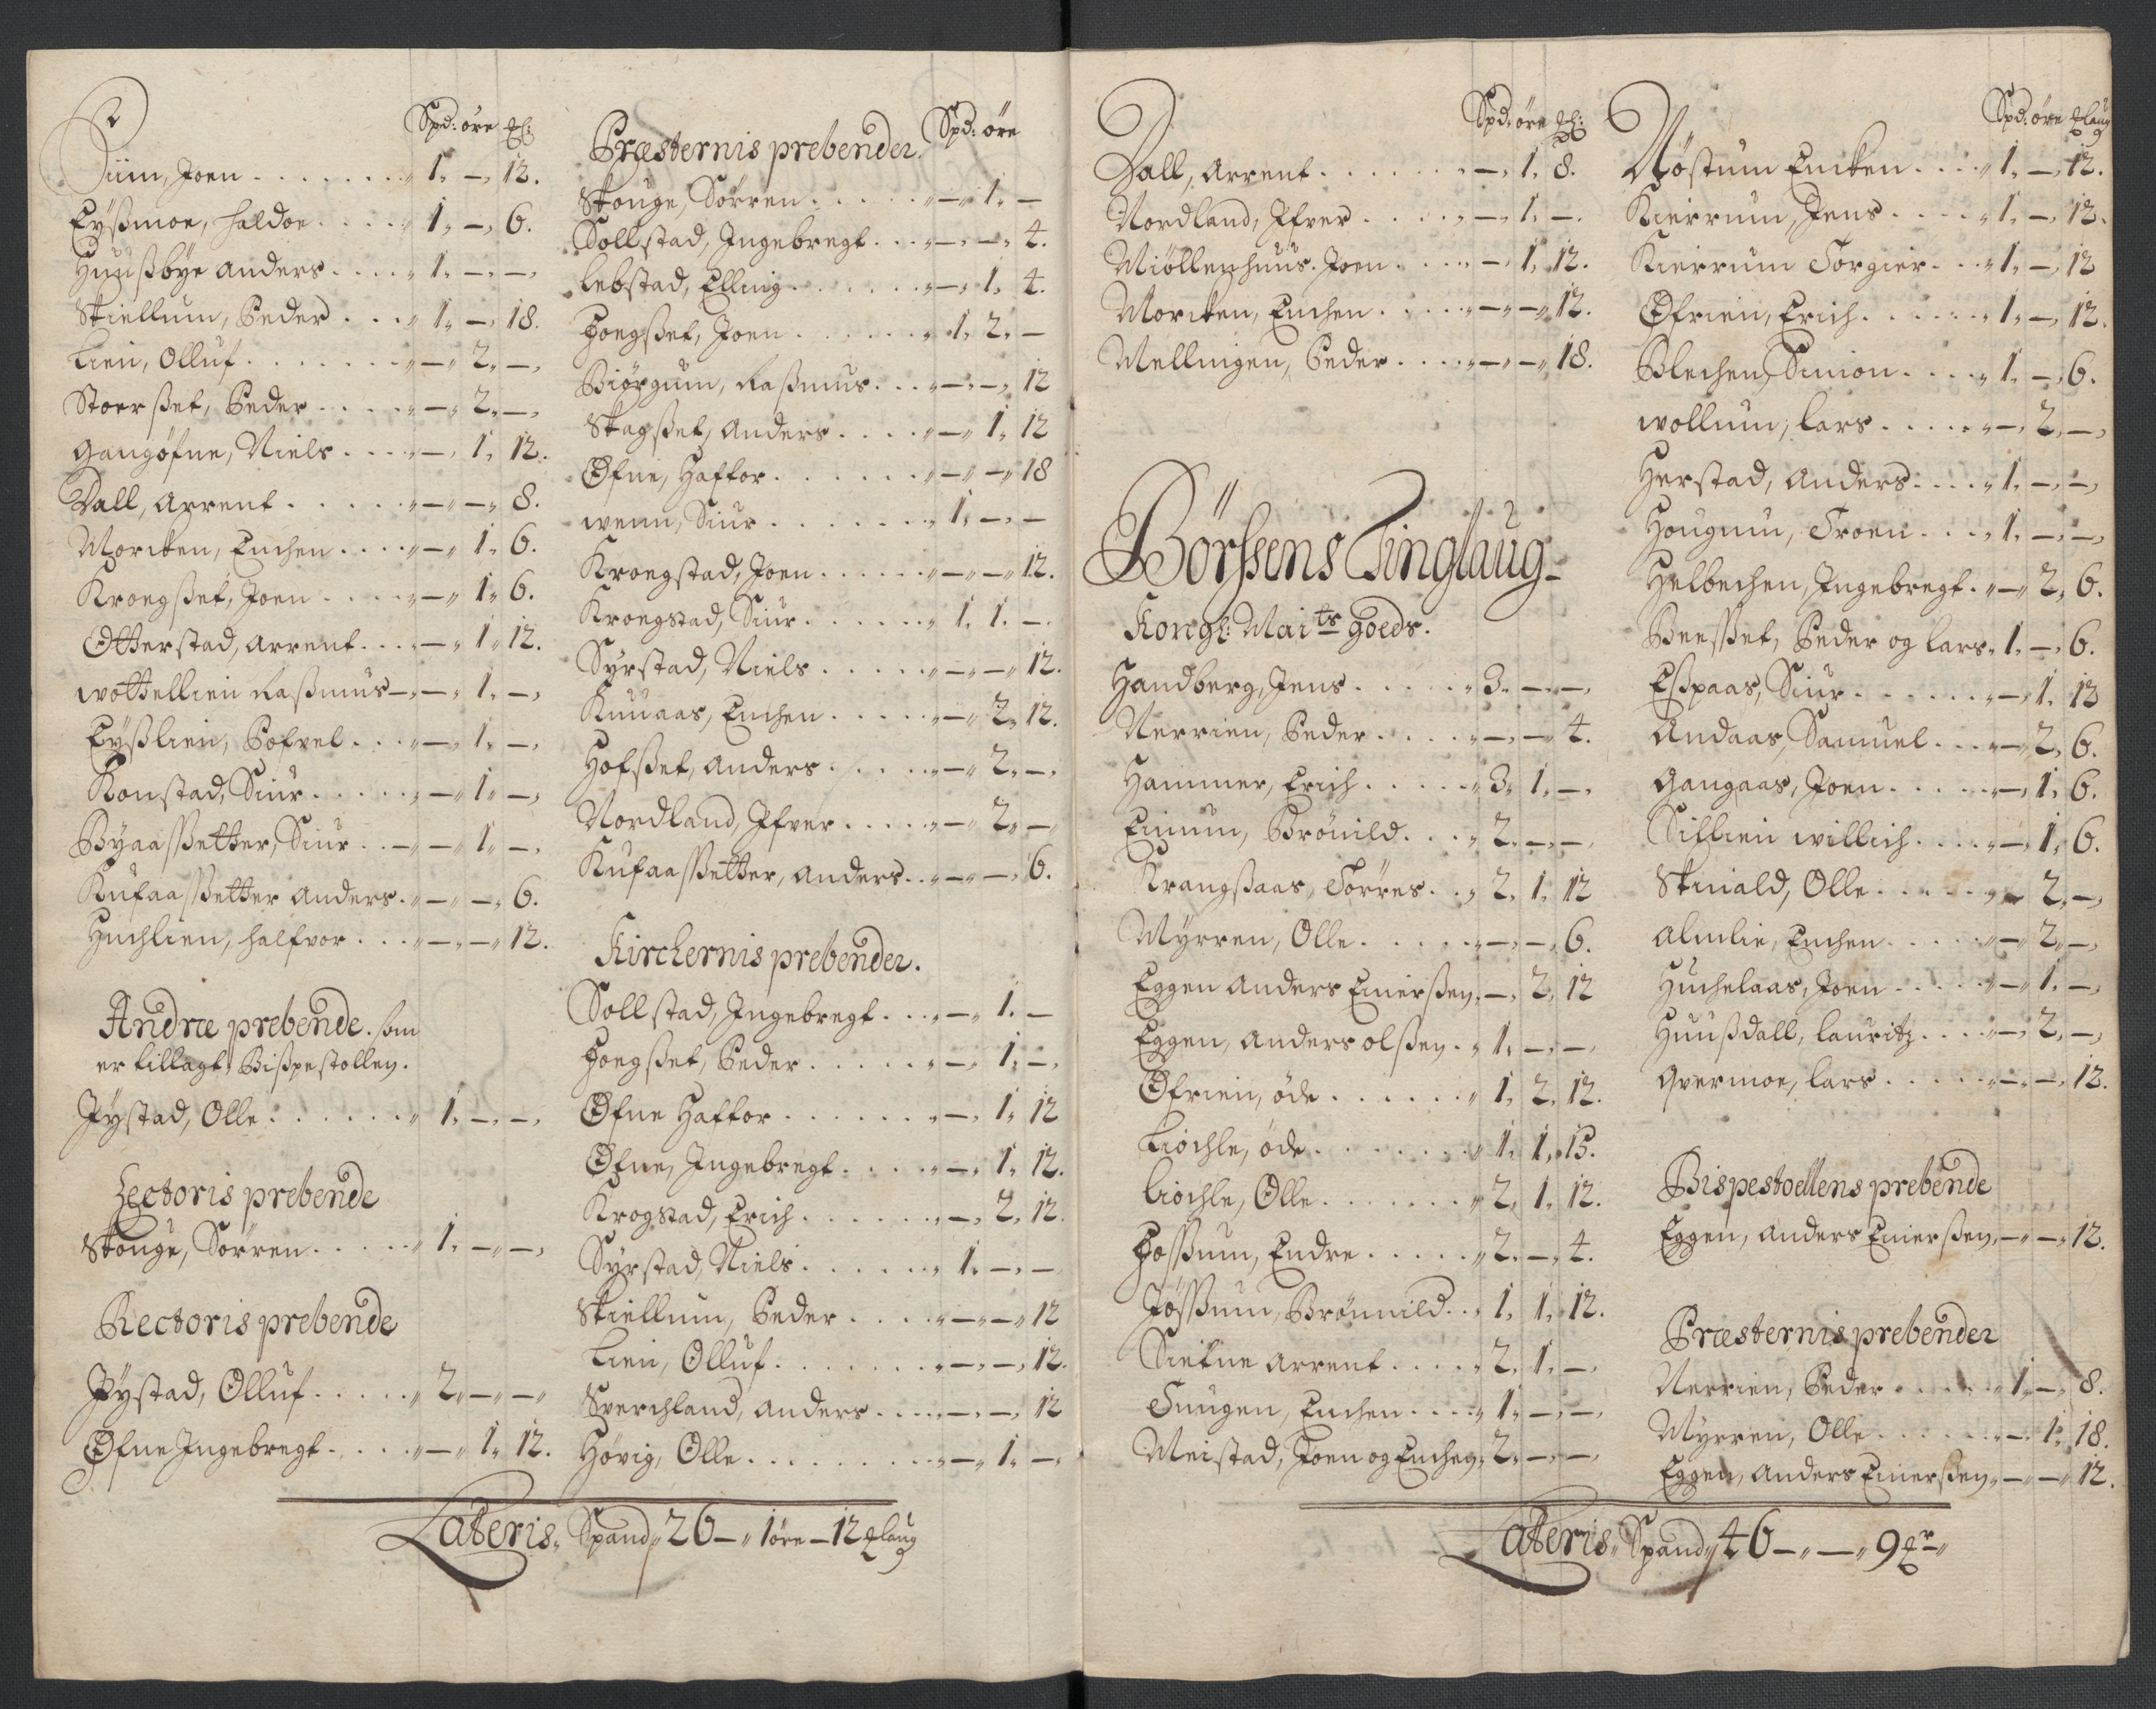 Spd: öre
Siim, Joen . . . . . . . „ 1. – 12.
Eyßmoe, Haldoe . . . . „ 1. – 6.
Huußbye Anders . . . . „ 1. – –
Skiellum, Peder . . . „ 1. – 18.
Lien, Olluf . . . . . . . „ – 2. –
Stoerßet, Peder . . . . „ – 2. –
Gangöfne, Niels . . . . – 1. 12.
Dall, Arrent . . . . . „ – „ – 8.
Morcken, Enchen . . . . „ – „ 1. 6.
Kroegßet, Joen . . . . „ – „ 1. 6.
Otterstad, Arrent . . . – „ 1. 12.
Wottellien Raßmus – „ – „ 1. –
Eyßlien, Pofvel . . . „ – „ 1. –
Konstad, Siur . . . . . „ – „ 1. –
Byaasßetter, Siur . . – „ – „ 1. –
Kufaasßetter Anders . „ – „ – 6.
Huchlien, Halfvor . . . „ – „ – 12.
Andræ prebende. som
er tillagt Bißpestollen.
Jystad, Olle . . . . . . „ 1. – –
Lectoris prebende
Skouge, Sörren . . . . . „ 1. – –
Rectoris prebende
Jystad, Olluf . . . . . „ 2. – –
Øfne Ingebregt . . . . „ – „ 1. 12.
Præsternis prebender. Spd: öre
Skouge, Sörren . . . . . „ – „ 1. –
Sollstad, Ingebregt . . . „ – „ – 4.
Lebstad, Elling . . . . . . „ – 1. 4.
Hoegßet, Joen . . . . . . „ 1. 2. –
Biörgum, Raßmus . . . „ – „ – 12
Skagßet, Anders . . . . „ – „ 1. 12
Øfne, Haftor . . . . . . „ – „ – 18
Wenn, Siur . . . . . . . „ 1. – –
Kroegstad, Joen . . . . . . „ – „ – 12.
Kroegstad, Siur . . . . . . „ 1. 1. –
Syrstad, Niels . . . . . . „ – „ – 12.
Knuaas, Enchen . . . . . „ – „ 2. 12.
Hofßet, Anders . . . . . „ – „ 2. –
Nordland, Ifver . . . . „ – „ 2. –
Kufaasßetter, Anders . . „ – „ – 6.
Kirchernis prebender.
Sollstad, Ingebregt . . . „ – „ 1. –
Hoegßet, Peder . . . . . „ – „ 1. –
Øfne Haftor . . . . . . . „ – 1. 12
Øfne, Ingebregt . . . . „ – 1. 12.
Krogstad, Erich . . . . . . „ – 2. 12.
Syrstad, Niels . . . . . . „ 1. – –
Skiellum, Peder . . . . „ – „ – 12
Lien, Olluf . . . . . . . „ – „ – 12.
Sverchland, Anders . . . „ – „ – 12
Hövig, Olle . . . . . . . . „ – „ 1. –
Lateris. Spand „ 26 – „ 1 öre – 12 ℔laug
Spd: öre
Dall, Arrent . . . . . . . „ – 1. 8.
Nordland, Ifver . . . . „ – 1. –
Miöllenhuus. Joen . . . . „ – 1. 12.
Morcken, Enchen . . . . „ – „ – 12.
Mellingen, Peder . . . . „ – „ – 18.
Börssens Tinglaug
Kongl: Maits goeds.
Handberg, Jens . . . . . „ 3. – –
Nerrien, Peder . . . . . „ – „ – 4.
Hammer, Erich . . . . . „ 3. 1. –
Einum, Brönild . . . „ 2. – –
Krangßaas, Törres . . „ 2. 1. 12
Myrren, Olle . . . . . „ – „ – 6.
Eggen Anders Einersßen „ – 2. 12
Eggen, Anders olßen . „ 1. – –
Øfrien, öde . . . . . . „ 1. 2. 12.
Liöchle, öde . . . . . . . „ 1. 1. 15.
Liöchle, Olle . . . . . . . „ 2. 1. 12.
Hosßum, Endre . . . . . „ 2. – 4.
Jösßum, Brönnild . . „ 1. 1. 12.
Sietne Arrent . . . . „ 2. 1. –
Tungen, Enchen . . . . „ 1. – –
Meistad, Joen og Enchen „ 2. – –
Spd: öre ℔laug
Röstum Encken . . . . „ 1. – 12.
Kierrum, Jens . . . . „ 1. – 12.
Kierrum Torgier . . . „ 1. – 12
Øfrien, Erich . . . . . . „ 1. – 12.
Blechen, Simon . . . . „ 1. – 6.
Wollum, Lars . . . . . „ – 2. –
Herstad, Anders . . . . „ 1. – –
Hougum, Troen . . . . „ 1. – –
Helbechen, Ingebregt . „ – 2. 6.
Beesßet, Peder og Lars „ 1. – 6.
Eßpaas, Siur . . . . . . „ – 1. 13
Andaas, Samuel . . . „ – 2. 6.
Gangaas, Joen . . . . . „ – 1. 6.
Sillien Willich . . . . „ – 1. 6.
Skinald, Olle . . . . . „ – 2. –
Almlie, Enchen . . . . „ – 2. –
Huchelaas, Joen . . . . . „ – 1. –
Huußdall, Lauritz . . . „ – 2. –
Qvermoe, Lars . . . . . „ – „ – 12.
Bispestoellens prebende
Eggen, Anders Einersßen „ – „ – 12.
Præsternis prebender
Nerrien, Peder . . . . . „ 1. – 8.
Myrren, Olle . . . . . . „ – 1. 18.
Eggen, Anders Einersßen „ – „ – 12.
Lateris. Spand „ 46 – „ – „ 9